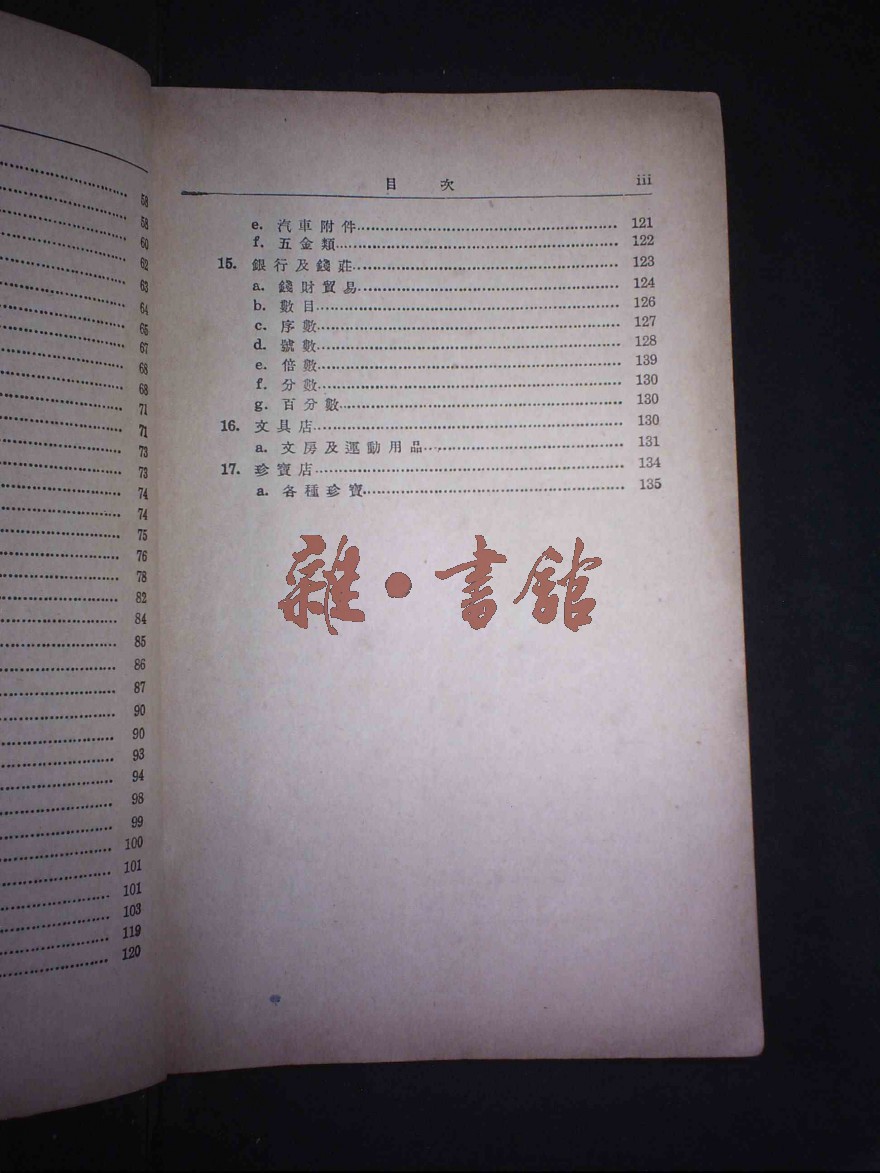 58
58
60
62
63
64
65
67
68
68
71
71
73
73
74
74
75
76
78
82
84
85
86
87
90
90
93
94
98
99
100
101
101
103
119
120
目 次 iii
e. 汽車附件 121
f. 五金類 122
15. 銀行及錢莊 123
a. 錢財貿易 124
b. 數目 126
c. 序數 127
d. 號數 128
e. 倍數 139
f. 分數 130
g. 百分數 130
16. 文具店 130
a. 文房及運動用品 131
17. 珍寶店 134
a. 各種珍寶 135
雜·書館